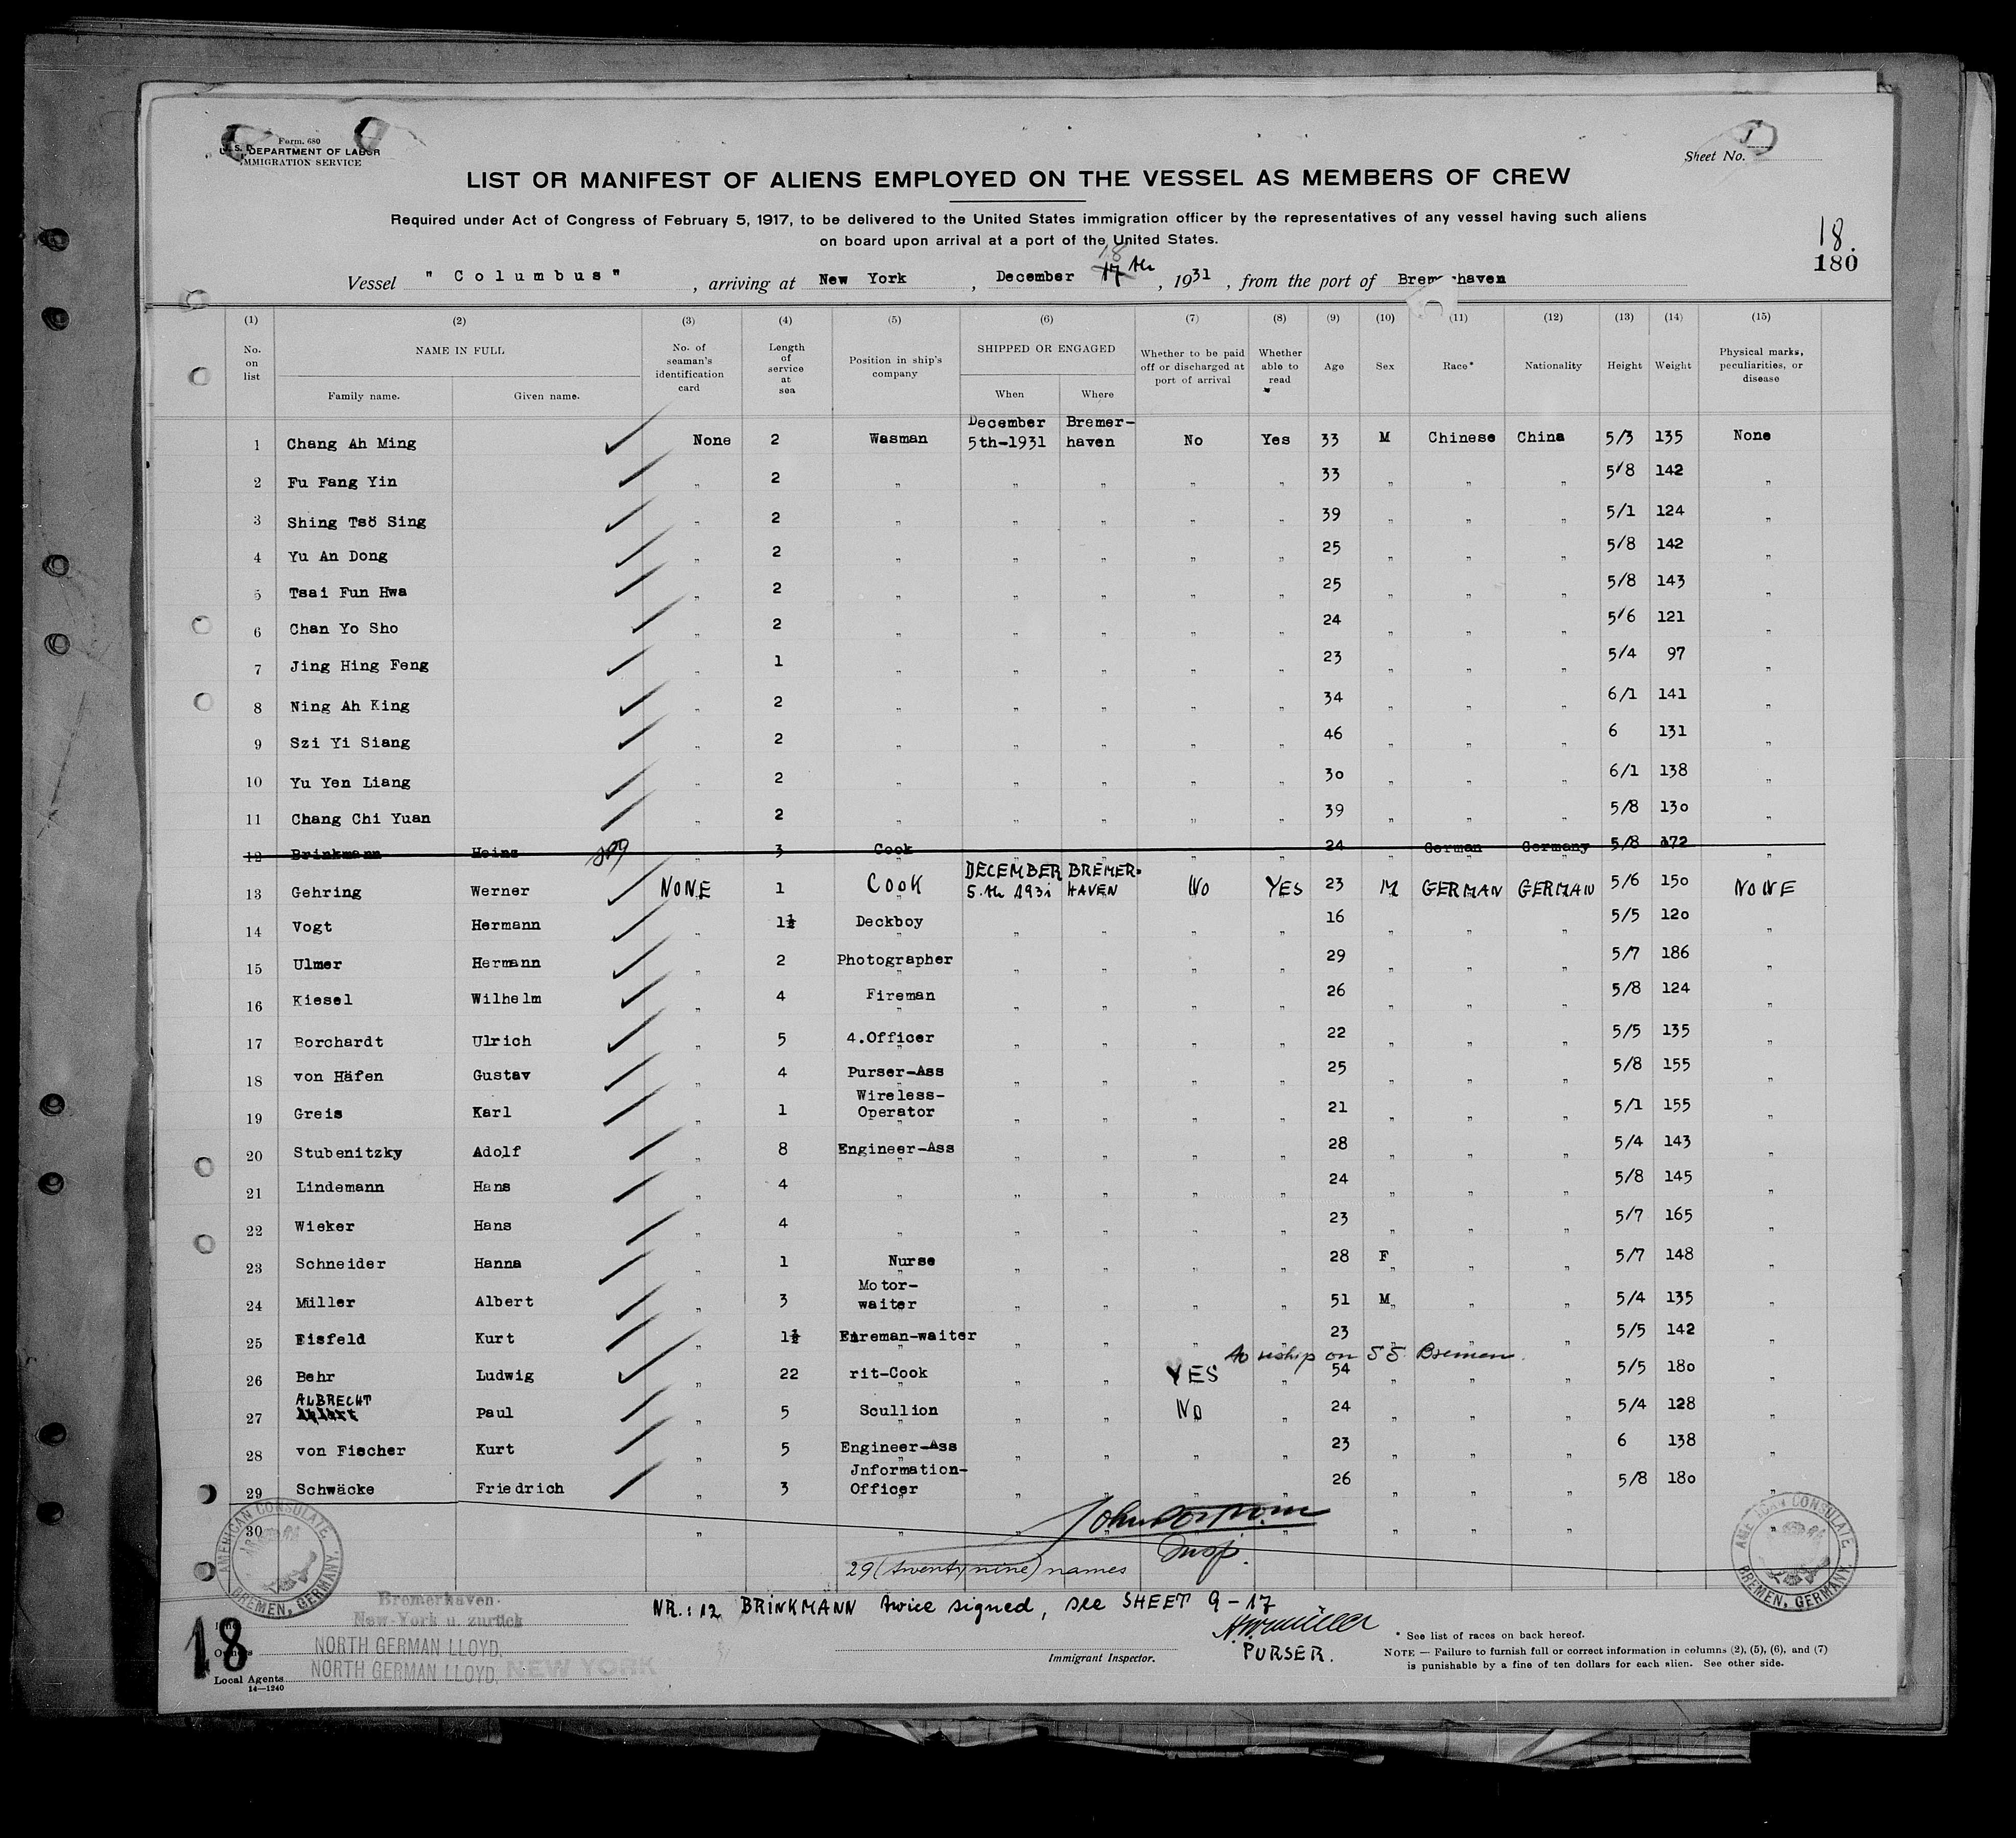 Form. 680
U. S. DEPARTMENT OF LABOR
IMMIGRATION SERVICE
Sheet No.
LIST OR MANIFEST OF ALIENS EMPLOYED ON THE VESSEL AS MEMBERS OF CREW
Required under Act of Congress of February 5, 1917, to be delivered to the United States immigration officer by the representatives of any vessel having such aliens
on board upon arrival at a port of the United States.
18.
180
Vessel " Columbus " , arriving at New York , December 18 17 th , 1931 , from the port of Bremerhaven
(1) (2) (3) (4) (5) (6) (7) (8) (9) (10) (11) (12) (13) (14) (15)
No. on list NAME IN FULL Family name. Given name. No. of seaman's identification card Length of service at sea Position in ship's company SHIPPED OR ENGAGED When Where Whether to be paid off or discharged at port of arrival Whether able to read Age Sex Race* Nationality Height Weight Physical marks, peculiarities, or disease
1 Chang Ah Ming None 2 Wasman December 5th-1931 Bremer-haven No Yes 33 M Chinese China 5/3 135 None
2 Fu Fang Yin " 2 " " " " " 33 " " " 5/8 142 "
3 Shing Tsö Sing " 2 " " " " " 39 " " " 5/1 124 "
4 Yu An Dong " 2 " " " " " 25 " " " 5/8 142 "
5 Tsai Fun Hwa " 2 " " " " " 25 " " " 5/8 143 "
6 Chan Yo Sho " 2 " " " " " 24 " " " 5/6 121 "
7 Jing Hing Feng " 1 " " " " " 23 " " " 5/4 97 "
8 Ning Ah King " 2 " " " " " 34 " " " 6/1 141 "
9 Szi Yi Siang " 2 " " " " " 46 " " " 6 131 "
10 Yu Yen Liang " 2 " " " " " 30 " " " 6/1 138 "
11 Chang Chi Yuan " 2 " " " " " 39 " " " 5/8 130 "
12 Brinkmann Heinz " 3 Cook " " " " 24 " German Germany 5/8 172 "
13 Gehring Werner NONE 1 COOK DECEMBER 5.th 1931 BREMER-HAVEN NO YES 23 M GERMAN GERMAN 5/6 150 NONE
14 Vogt Hermann " 1½ Deckboy " " " " 16 " " " 5/5 120 "
15 Ulmer Hermann " 2 Photographer " " " " 29 " " " 5/7 186 "
16 Kiesel Wilhelm " 4 Fireman " " " " 26 " " " 5/8 124 "
17 Borchardt Ulrich " 5 4.Officer " " " " 22 " " " 5/5 135 "
18 von Häfen Gustav " 4 Purser-Ass " " " " 25 " " " 5/8 155 "
19 Greis Karl " 1 Wireless-Operator " " " " 21 " " " 5/1 155 "
20 Stubenitzky Adolf " 8 Engineer-Ass " " " " 28 " " " 5/4 143 "
21 Lindemann Hans " 4 " " " " " 24 " " " 5/8 145 "
22 Wieker Hans " 4 " " " " " 23 " " " 5/7 165 "
23 Schneider Hanna " 1 Nurse " " " " 28 F " " 5/7 148 "
24 Müller Albert " 3 Motor-waiter " " " " 51 M " " 5/4 135 "
25 Eisfeld Kurt " 1½ Fireman-waiter " " " " 23 " " " 5/5 142 "
to reship on SS Bremen.
26 Behr Ludwig " 22 rit-Cook " " YES " 54 " " " 5/5 180 "
27 ALBRECHT Paul " 5 Scullion " " NO " 24 " " " 5/4 128 "
28 von Fischer Kurt " 5 Engineer-Ass " " " " 23 " " " 6 138 "
29 Schwäcke Friedrich " 3 Jnformation-Officer " " " " 26 " " " 5/8 180 "
30
Insp.
29 (twenty nine) names
AMERICAN CONSULATE BREMEN, GERMANY.
AMERICAN CONSULATE BREMEN, GERMANY.
NR.: 12 BRINKMANN twice signed, see SHEET 9-17
PURSER.
Bremerhaven-
New-York u. zurück
18
Line
Owners NORTH GERMAN LLOYD,
Local Agents NORTH GERMAN LLOYD, NEW YORK
14—1240
Immigrant Inspector.
* See list of races on back hereof.
NOTE — Failure to furnish full or correct information in columns (2), (5), (6), and (7)
is punishable by a fine of ten dollars for each alien. See other side.